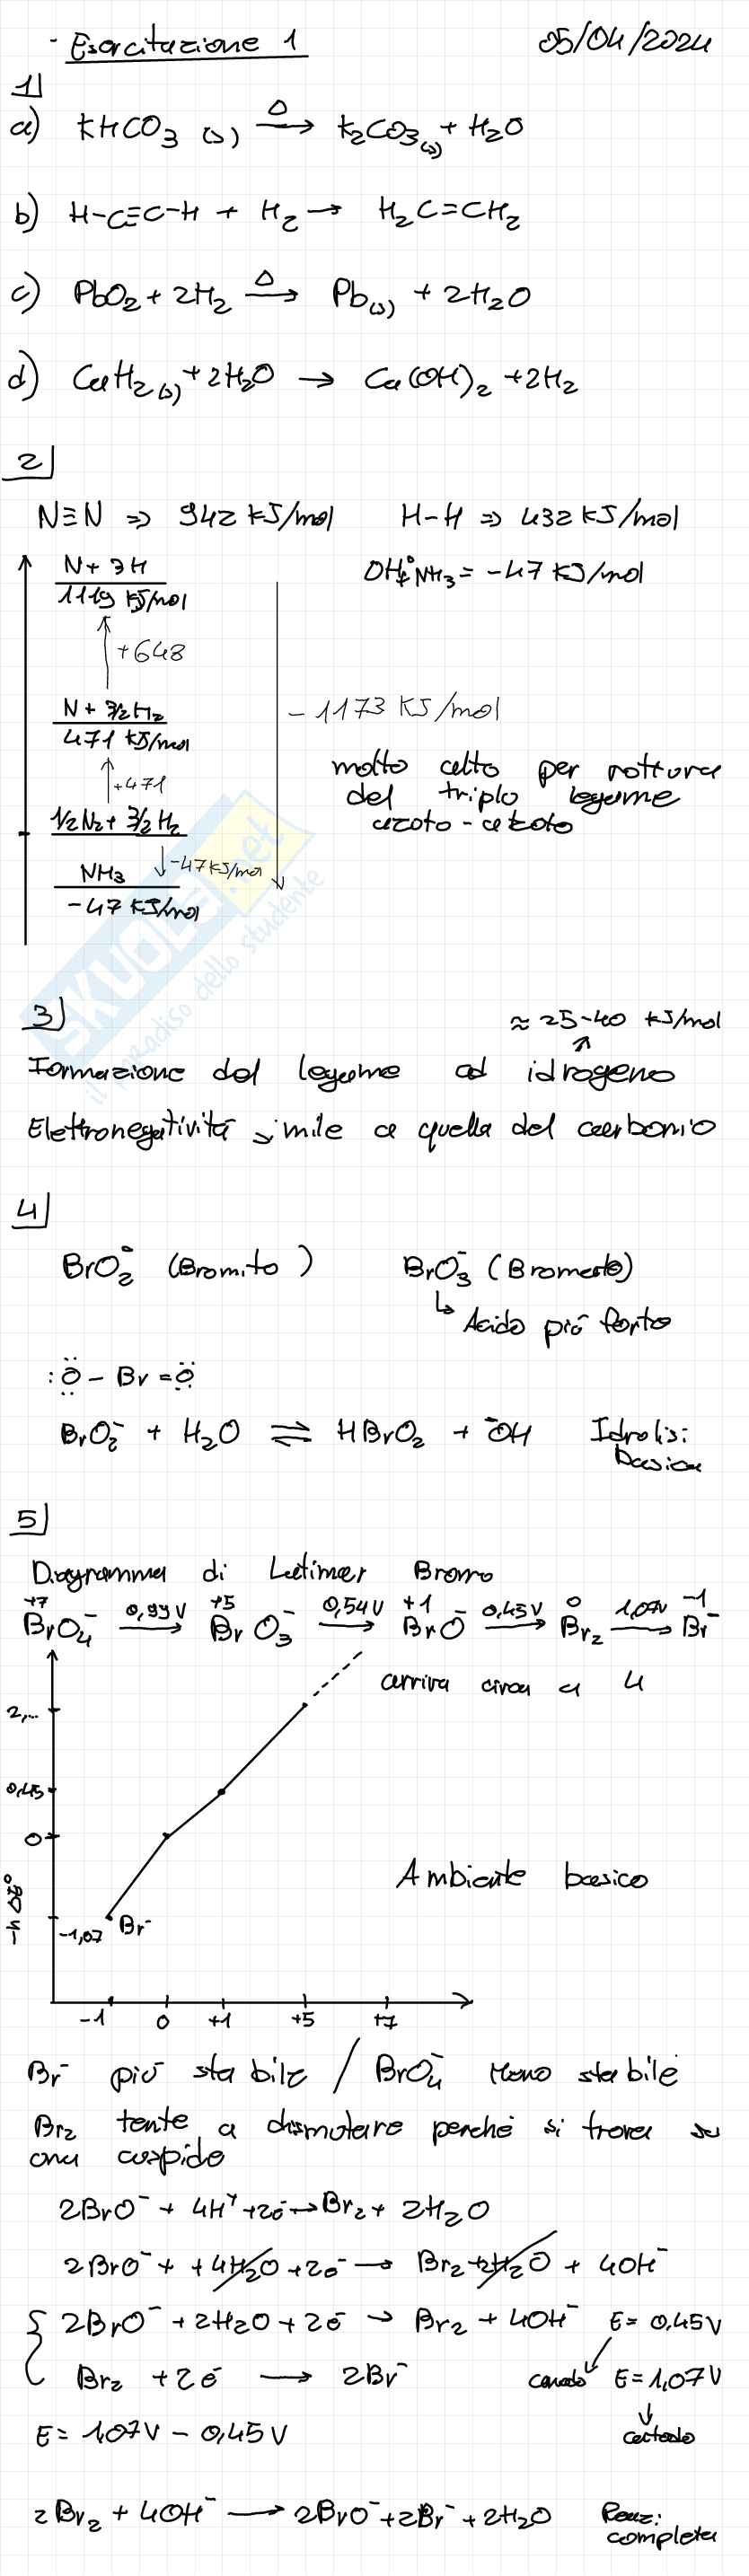 - Esercitazione 1 05/04/2024
1]
a) KHCO3 (s) Δ→ K2CO3(s) + H2O
b) H-C≡C-H + H2 → H2C=CH2
c) PbO2 + 2H2 Δ→ Pb(s) + 2H2O
d) CaH2(s) + 2H2O → Ca(OH)2 + 2H2
2]
N≡N => 942 kJ/mol H-H => 432 kJ/mol
N + 3H
1119 kJ/mol
ΔH°f NH3 = -47 kJ/mol
+648
N + 3/2H2
471 kJ/mol
- 1173 KJ/mol
+471
molto alto per rottura
del triplo legame
azoto-azoto
1/2N2 + 3/2H2
↓-47KJ/mol
NH3
-47 KJ/mol
SKUOLA.net
il paradiso dello studente
3]
≈ 25-40 kJ/mol
Formazione del legame ad idrogeno
Elettronegatività simile a quella del carbonio
4]
BrO2⁻ (Bromito) BrO3⁻ (Bromato)
↳ Acido più forte
:Ö - Br = Ö
BrO2⁻ + H2O ⇌ HBrO2 + ⁻OH Idrolisi
basica
5]
Diagramma di Latimer Bromo
+7 +5 +1 0 -1
BrO4⁻ 0,99V→ BrO3⁻ 0,54V→ BrO⁻ 0,45V→ Br2 1,07V→ Br⁻
arriva circa a 4
2,...
0,45
0
Ambiente basico
-n ΔE°
-1,07 Br⁻
-1 0 +1 +5 +7
Br⁻ più stabile / BrO4⁻ meno stabile
Br2 tente a dismutare perché si trova su
una cuspide
2BrO⁻ + 4H⁺ + 2e⁻ → Br2 + 2H2O
2BrO⁻ + + 4H2O + 2e⁻ → Br2 + 2H2O + 4OH⁻
2BrO⁻ + 2H2O + 2e⁻ → Br2 + 4OH⁻ E = 0,45V
Br2 + 2e⁻ → 2Br⁻ anodo E = 1,07V
E = 1,07V - 0,45V catodo
2Br2 + 4OH⁻ → 2BrO⁻ + 2Br⁻ + 2H2O Reaz.
completa